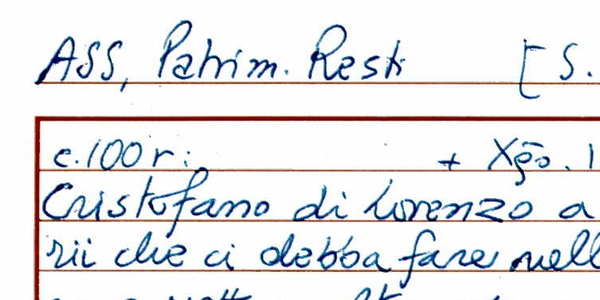 ASS, Patrim. Resti [ S.
c. 100 r: + Xs̄o. 1
Cristofano di Lorenzo a
rii che ci debba fare nell